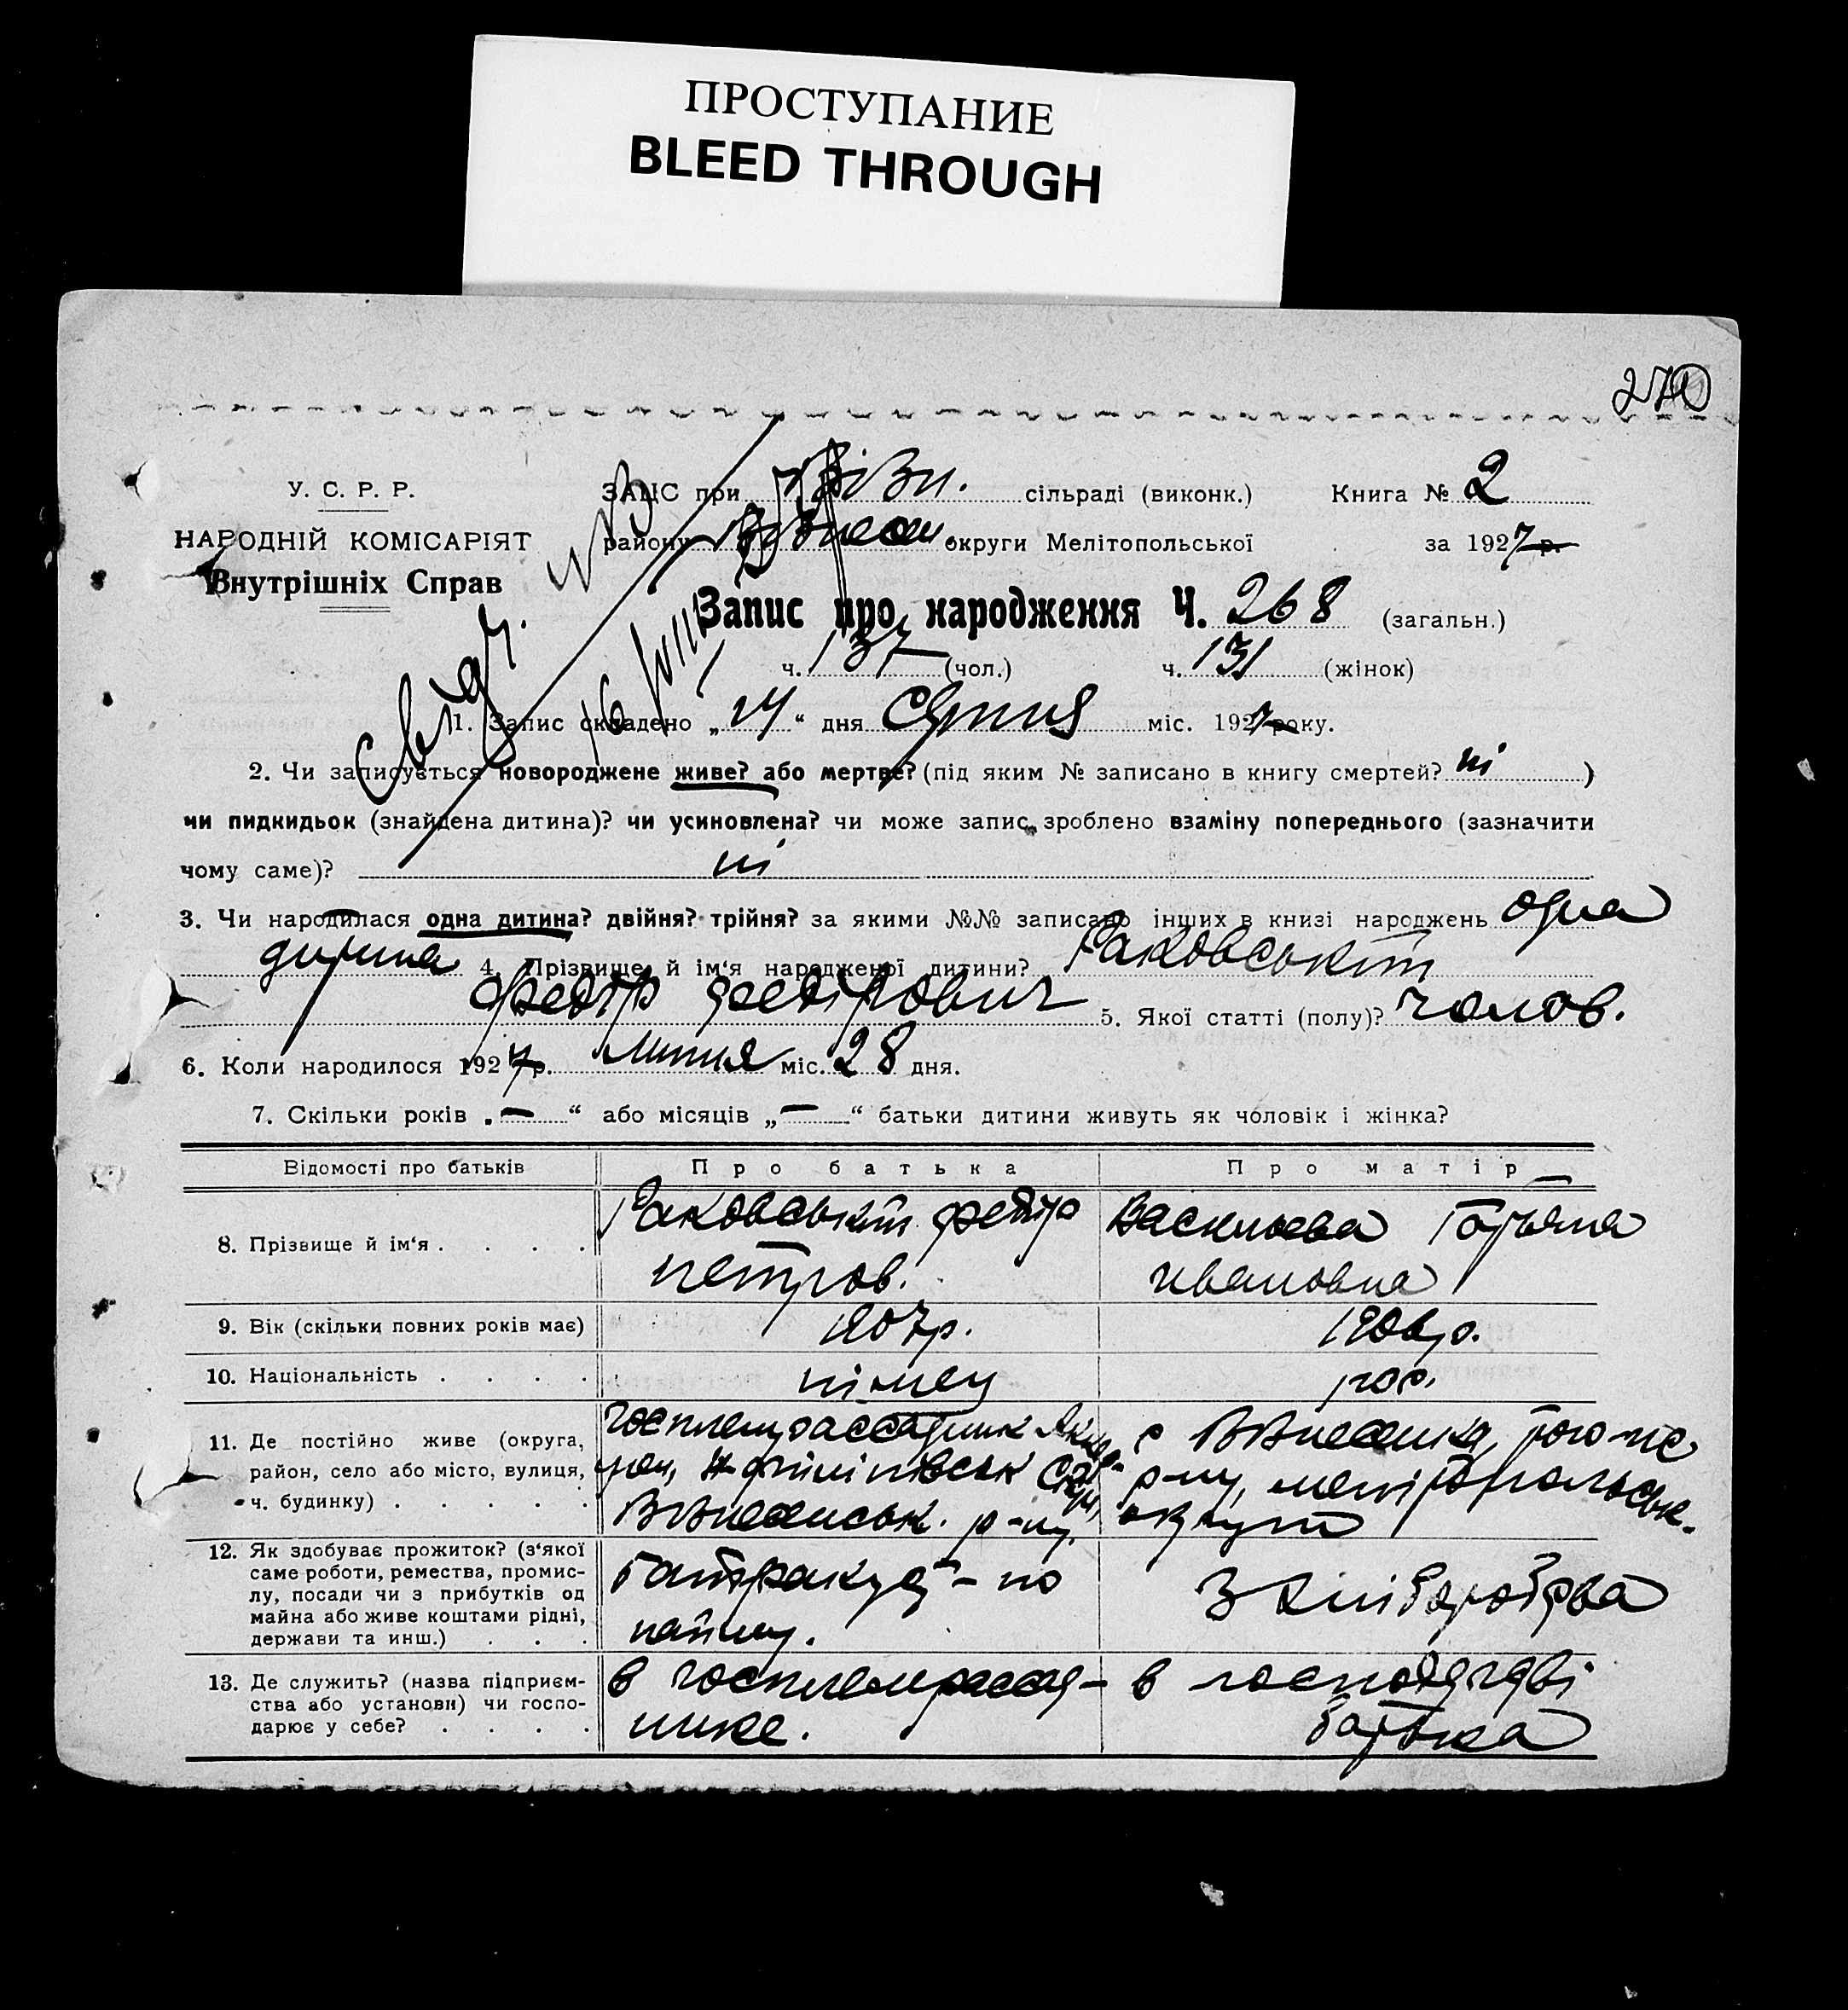 ПРОСТУПАНИЕ
BLEED THROUGH
270
У. С. Р. Р.
НАРОДНІЙ КОМІСАРІЯТ
Внутрішніх Справ
ЗАЦС при сільраді (виконк.) Книга № 2
району округи Мелітопольської за 1927 р.
Запис про народження Ч. 268 (загальн.)
ч. 137 (чол.) ч. 131 (жінок)
1. Запис складено „14“ дня Серпня міс. 1927 року.
2. Чи записується новороджене живе? або мертве? (під яким № записано в книгу смертей? ні )
чи пидкидьок (знайдена дитина)? чи усиновлена? чи може запис зроблено взаміну попереднього (зазначити
чому саме)? ні
3. Чи народилася одна дитина? двійня? трійня? за якими №№ записано інших в книзі народжень одна
дитина 4. Прізвище й ім'я народженої дитини? Раковський
Федір Федірович 5. Якої статті (полу)? чолов.
6. Коли народилося 1927 р. Липня міс. 28 дня.
7. Скільки років „—“ або місяців „—“ батьки дитини живуть як чоловік і жінка?
Відомості про батьків Про батька Про матір
8. Прізвище й ім'я . . . . Раковський Федір Васильева Татьяна
петров. ивановна
9. Вік (скільки повних років має) 1907р. 1906р.
10. Національність . . . . німец рос.
11. Де постійно живе (округа,
район, село або місто, вулиця,
ч. будинку) . . . . .
р-ну, мелітопольськ.
округи
12. Як здобуває прожиток? (з'якої
саме роботи, ремества, промис-
лу, посади чи з прибутків од
майна або живе коштами рідні,
держави та инш.) . . .
по
найму.
З хліборобства
13. Де служить? (назва підприєм-
ства або установи) чи госпо-
дарює у себе? . . . .
в госплемрассад-
нике.
в господарстві
батька